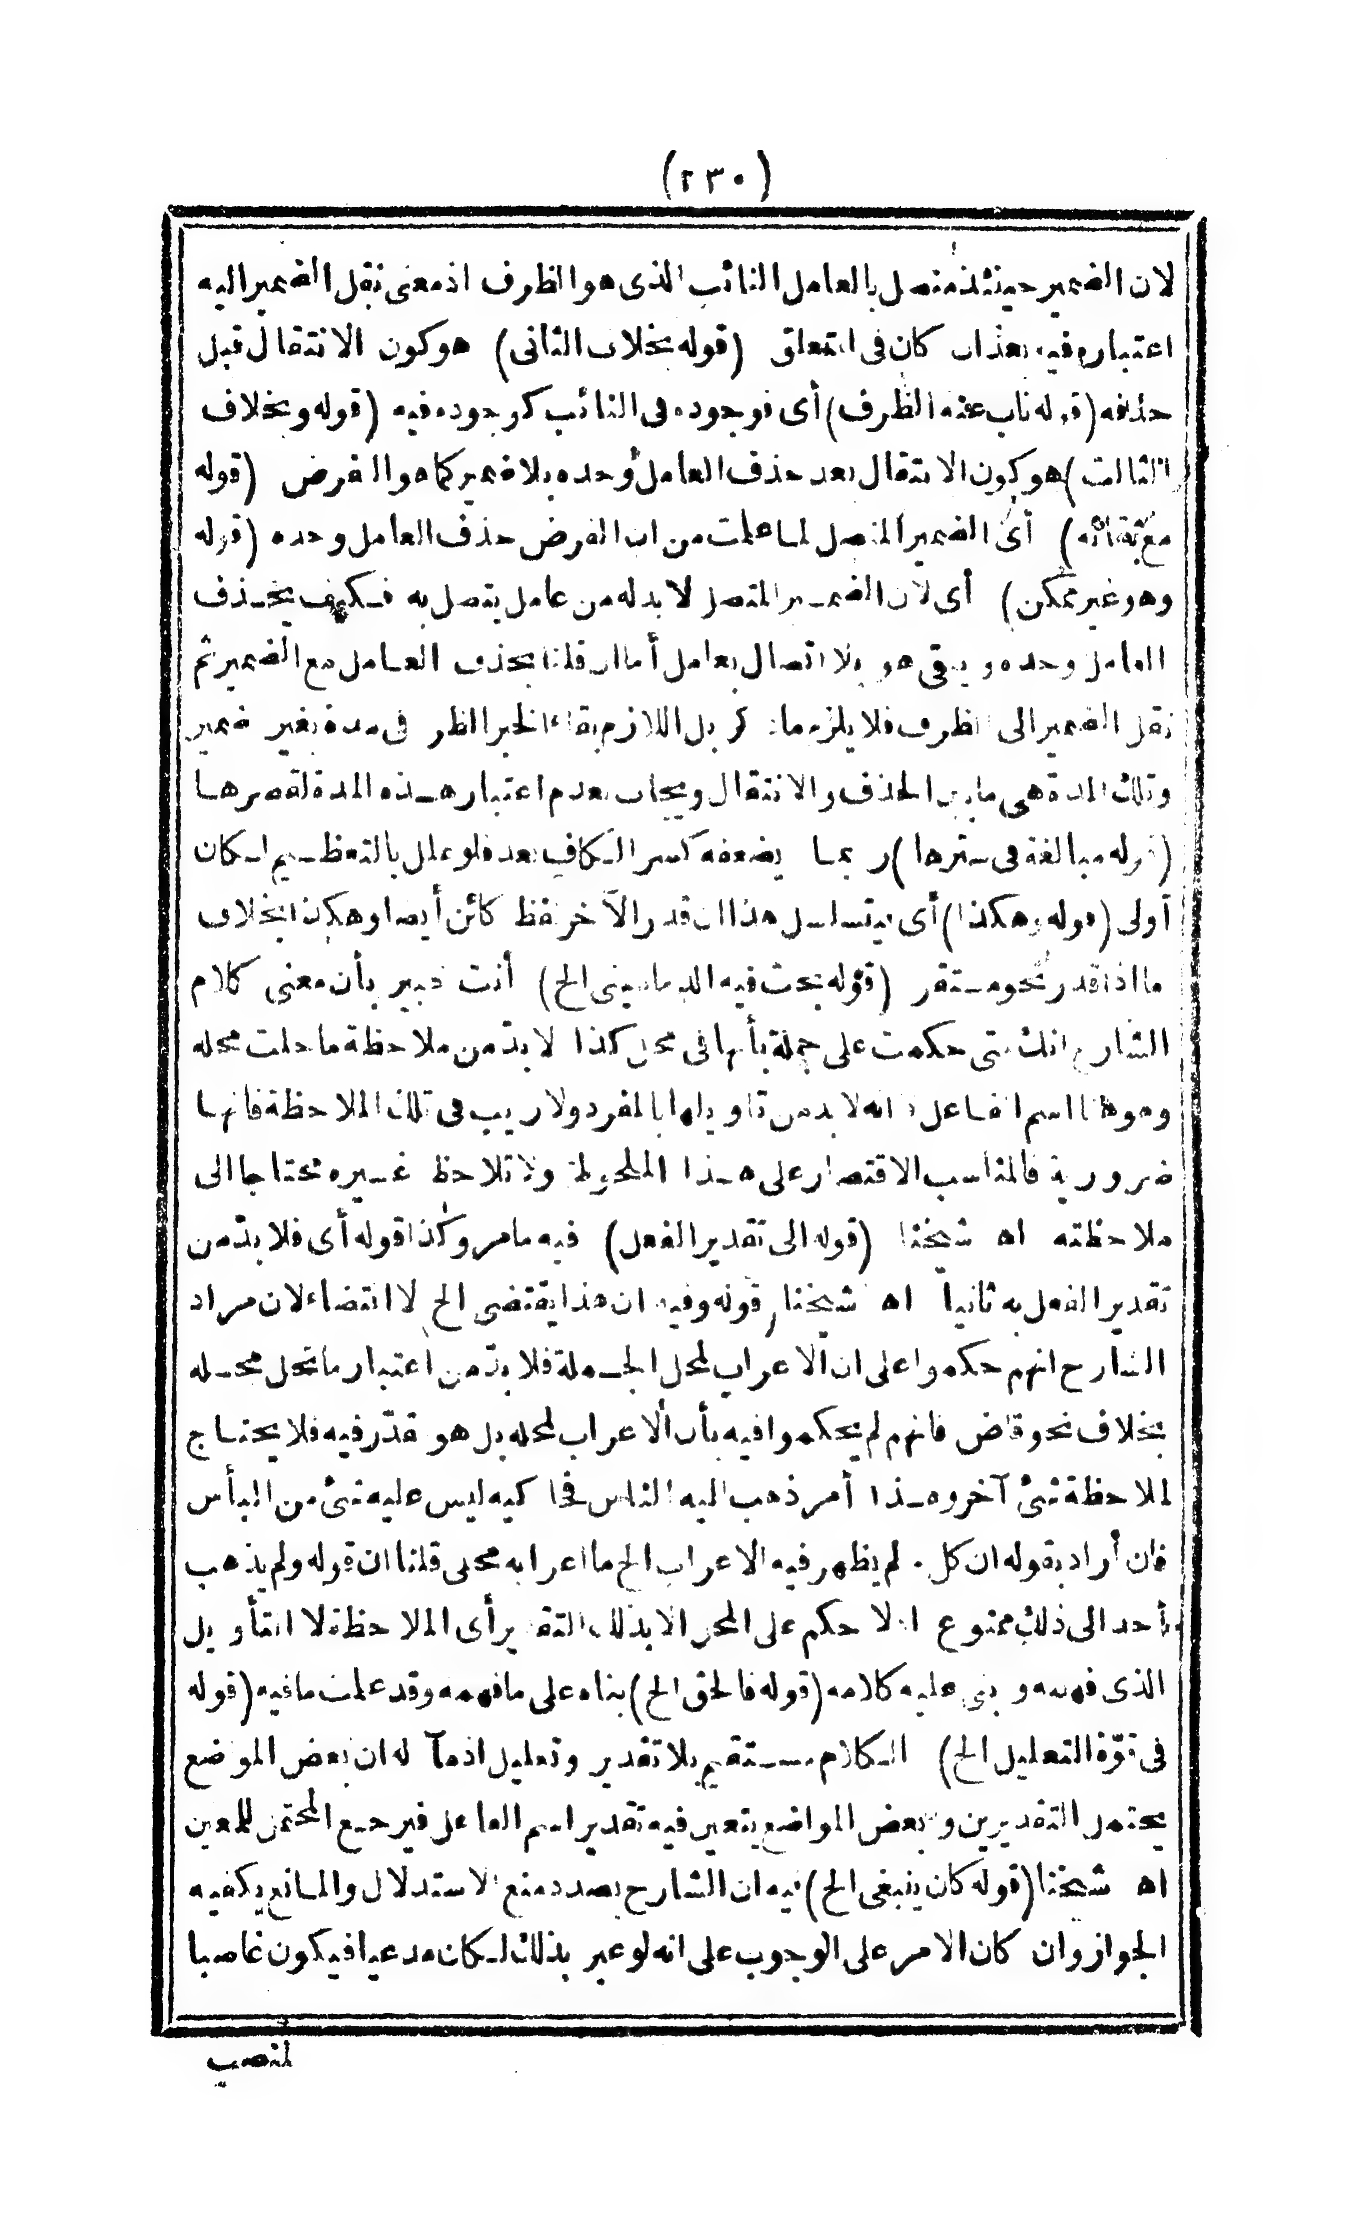 (٢٣٠)
لان الضمير حينئذ متصل بالعامل النائب الذى هو الظرف اذ معنى نقل الضمير اليه
اعتباره فيه بعد ان كان فى المتعلق (قوله بخلاف الثانى) هو كون الانتقال قبل
حذفه (قوله ناب عنه الظرف) أى فوجوده فى النائب كوجوده فيه (قوله وبخلاف
الثالث) هو كون الانتقال بعد حذف العامل وحده بلا ضمير كما هو الفرض (قوله
مع بقائه) أى الضمير المتصل لما علمت من ان الفرض حذف العامل وحده (قوله
وهو غير ممكن) أى لان الضمير المتصل لا بد له من عامل يتصل به فكيف يحذف
العامل وحده و يبقى هو بلا اتصال بعامل أما ان قلنا بحذف العامل مع الضمير ثم
نقل الضمير الى الظرف فلا يلزم ما ذكر بل اللازم بقاء الخبر الظرف فى مدة بغير ضمير
وتلك المدة هى ما بين الحذف والانتقال ويجاب بعدم اعتبار هذه المدة لقصرها
(قوله مبالغة فى سترها) ربما يضعفه كسر الكاف بعد فلو علل بالتعظيم لكان
أولى (قوله وهكذا) أى يتسلسل هذا ان قدر الآخر بلفظ كائن أيضا وهكذا بخلاف
ما اذا قدر نحو مستقر (قوله بحث فيه الدمامينى الخ) أنت خبير بأن معنى كلام
الشارح انك متى حكمت على جملة بأنها فى محل كذا لا بدّ من ملاحظة ما حلت محله
وهو هنا اسم الفاعل لانه لا بد من تاويلها بالمفرد ولا ريب فى تلك الملاحظة فانها
ضرورية فالمناسب الاقتصار على هذا الملحوظ ولا تلاحظ غيره محتاجا الى
ملاحظته اه شيخنا (قوله الى تقدير الفعل) فيه ما مر وكذا قوله أى فلا بدّ من
تقدير الفعل به ثانيا اه شيخنا (قوله وفيه ان هذا يقتضى الخ) لا اقتضاء لان مراد
الشارح انهم حكموا على ان الاعراب لمحل الجملة فلا بدّ من اعتبار ما تحل محله
بخلاف نحو قاض فانهم لم يحكموا فيه بأن الاعراب لمحله بل هو مقدّر فيه فلا يحتاج
لملاحظة شئ آخر وهذا أمر ذهب اليه الناس فحاكيه ليس عليه شئ من البأس
فان أراد بقوله ان كل ما لم يظهر فيه الاعراب الخ ما اعرابه محلى قلنا ان قوله ولم يذهب
أحد الى ذلك ممنوع اذ لا حكم على المحل الا بذلك التقدير أى الملاحظة لا التأويل
الذى فهمه و بنى عليه كلامه (قوله فالحق الخ) بناه على ما فهمه وقد علمت ما فيه (قوله
فى قوّة التعليل الخ) الكلام مستقيم بلا تقدير وتعليل اذ مآله ان بعض المواضع
يحتمل التقديرين و بعض المواضع يتعين فيه تقدير اسم الفاعل فيرجع المحتمل للمعين
اه شيخنا (قوله كان ينبغى الخ) فيه ان الشارح بصدد منع الاستدلال والمانع يكفيه
الجواز وان كان الامر على الوجوب على انه لو عبر بذلك لكان مدعيا فيكون غاصبا
لمنصب